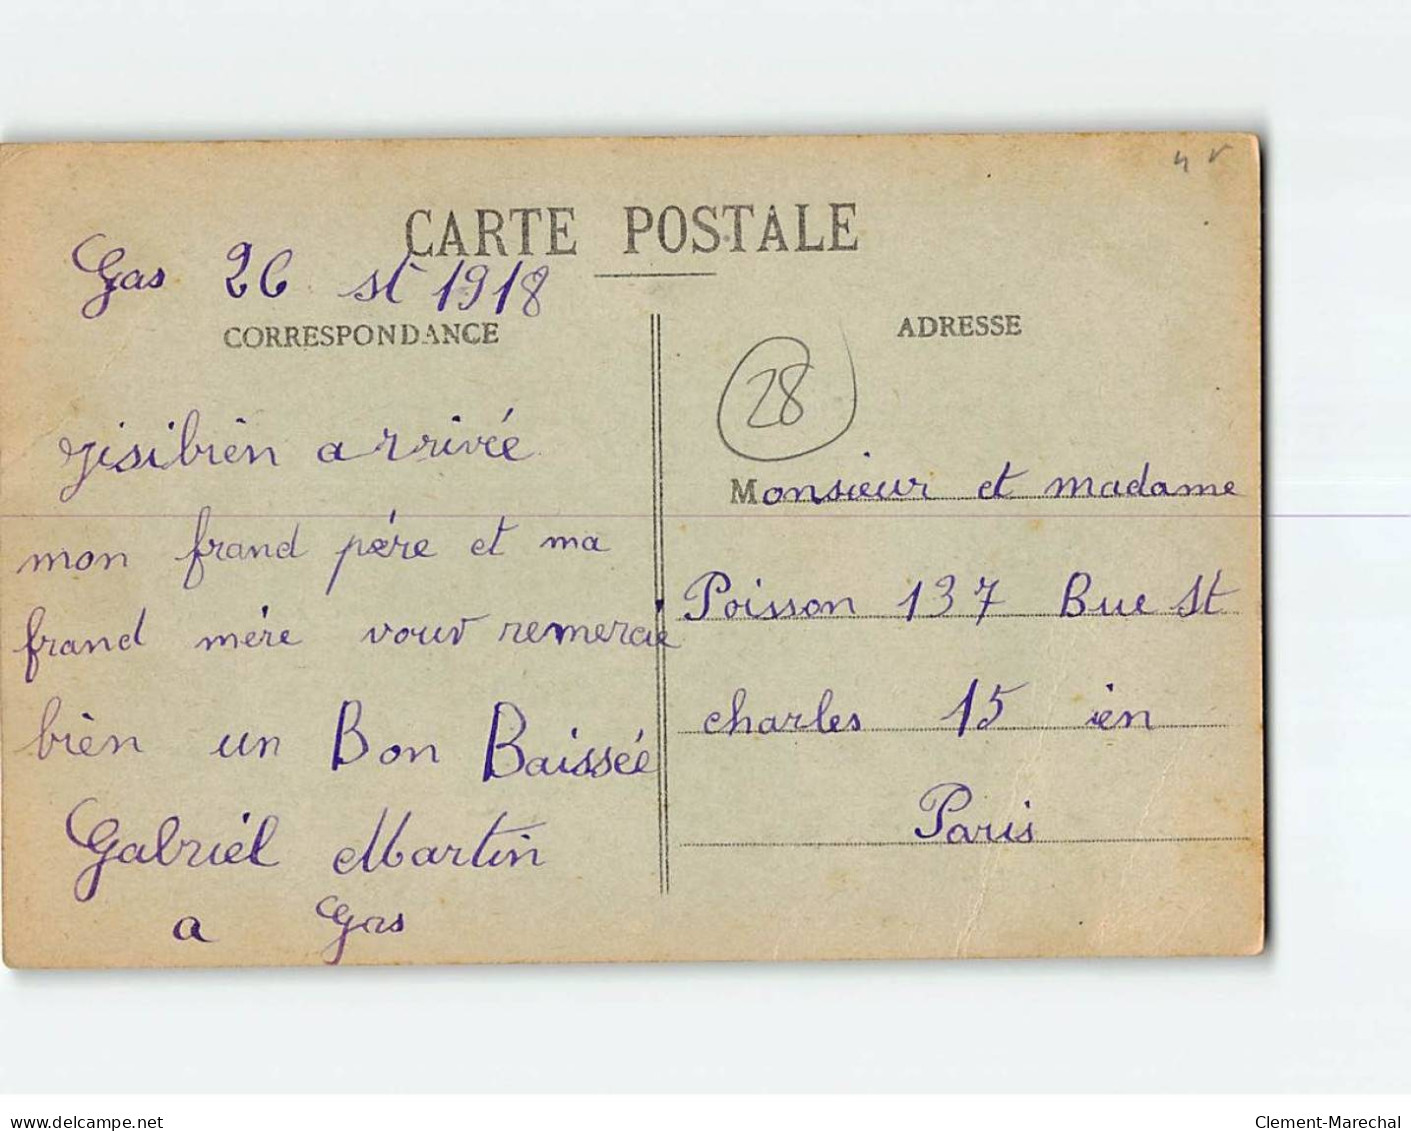 CARTE POSTALE
Gas 26 st 1918
CORRESPONDANCE
jisibien arrivée
mon frand père et ma
frand mère vouv remercie
bien un Bon Baissée
Gabriel Martin
a Gas
ADRESSE
28
Monsieur et madame
Poisson 137 Bue St
charles 15 ien
Paris
www.delcampe.net
Clement-Marechal